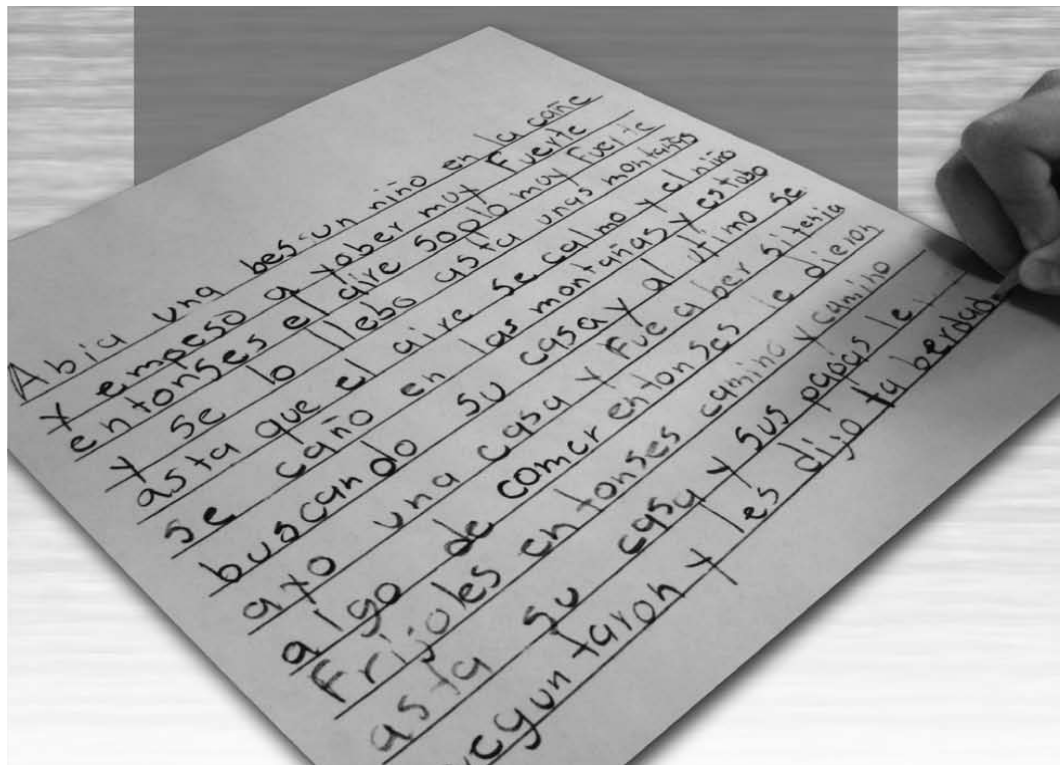 Abia una bes un niño en la cañe
y empeso a yober muy Fuerte
entonses el aire soplo muy Fuerte
y se lo llebo asta unas montañas
asta que el aire se calmo y el niño
se caño en las montañas y estubo
buscando su casa y al utimo se
ayo una casa y Fue a ber si tenia
algo de comer entonses le dieron
Frijoles entonses camino y camino
asta su casa y sus papás le
reguntaron y les dijo la berdad